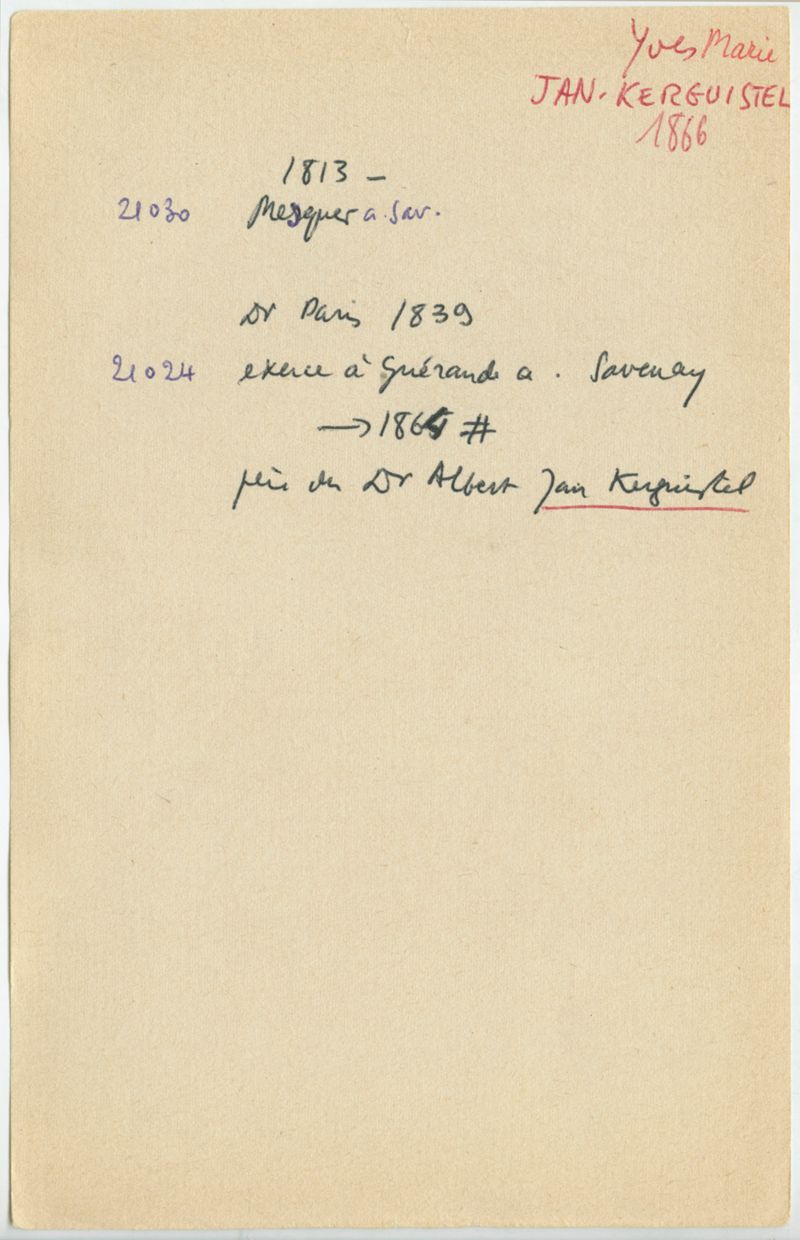 Yves Marie
JAN-KERGUISTEL
1866
1813 –
21030 Mesquer a. Sav.
Dr Paris 1839
21024 exerce à Guérande a. Savenay
→ 1864 #
père du Dr Albert Jan Kerguistel